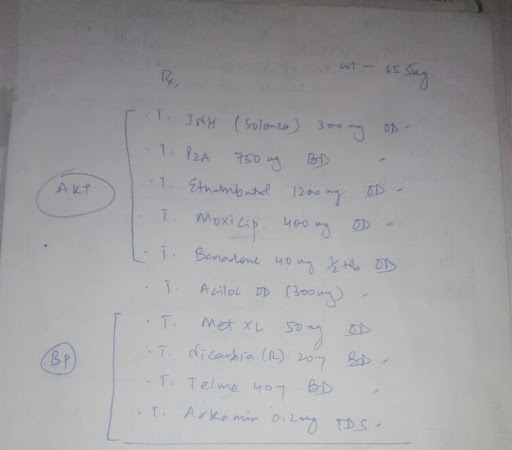 wt - 65.5kg
Rx,
T. INH (Solonex) 300mg OD -
T. PZA 750mg BD -
AKT
T. Ethambutol 1200mg OD -
T. Moxicip. 400mg OD -
T. Benadone 40mg ½ tab OD
T. Aciloc OD (300mg) -
T. Met XL 50mg OD
BP
T. Nicardia (R) 20 BD -
T. Telma 40 BD -
T. Arkamin 0.2mg TDS -